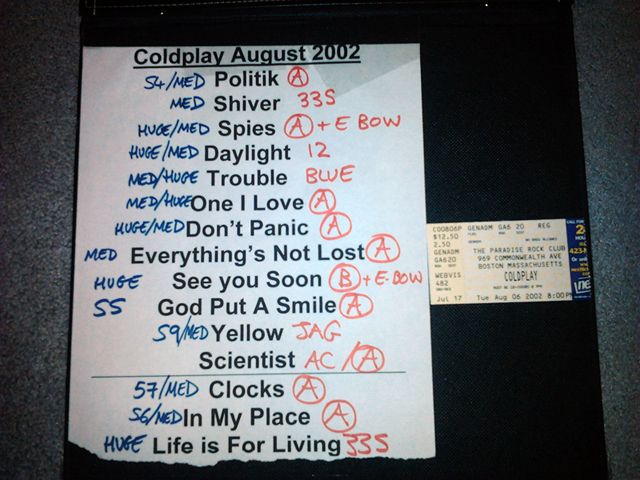 Coldplay August 2002
S4/MED Politik A
MED Shiver 335
HUGE/MED Spies A + E BOW
HUGE/MED Daylight 12
MED/HUGE Trouble BLUE
MED/HUGE One I Love A
HUGE/MED Don't Panic A
MED Everything's Not Lost A
HUGE See you Soon B + E-BOW
SS God Put A Smile A
S9/MED Yellow JAG
Scientist AC/A
S7/MED Clocks A
S6/MED In My Place A
HUGE Life is For Living 335
C00806P GENADM GA6 20 REG
$12.50
2.50 THE PARADISE ROCK CLUB
GENADM 969 COMMONWEALTH AVE
GA620 BOSTON MASSACHUSETTS
WEBVIS COLDPLAY
482
Jul 17 Tue Aug 06 2002 8:00PM